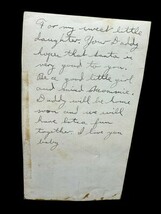 For my sweet little
daughter, Your Daddy
hopes that Santa is
very good to you.
Be a good little girl
and mind
Daddy will be home
soon and we will
have lots a fun
together. I love you
baby